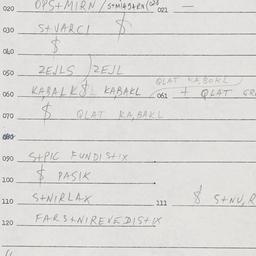 020 OPS+MIRN / S+MI+S+RN (020 021 —
030 S+VARCI $
040 $
050 ZEJLS / ZEJL
QLAT KA,BAKL
060 KABALK $ KABAKL 061 + QLAT
070 $ QLAT KA,BAKL
080
090 S+PIC FUNDIS+IX
100 $ PASIK
110 S+NIRLAX 111 $ S+NU,R
120 FARS+NIREVEDIS+IX